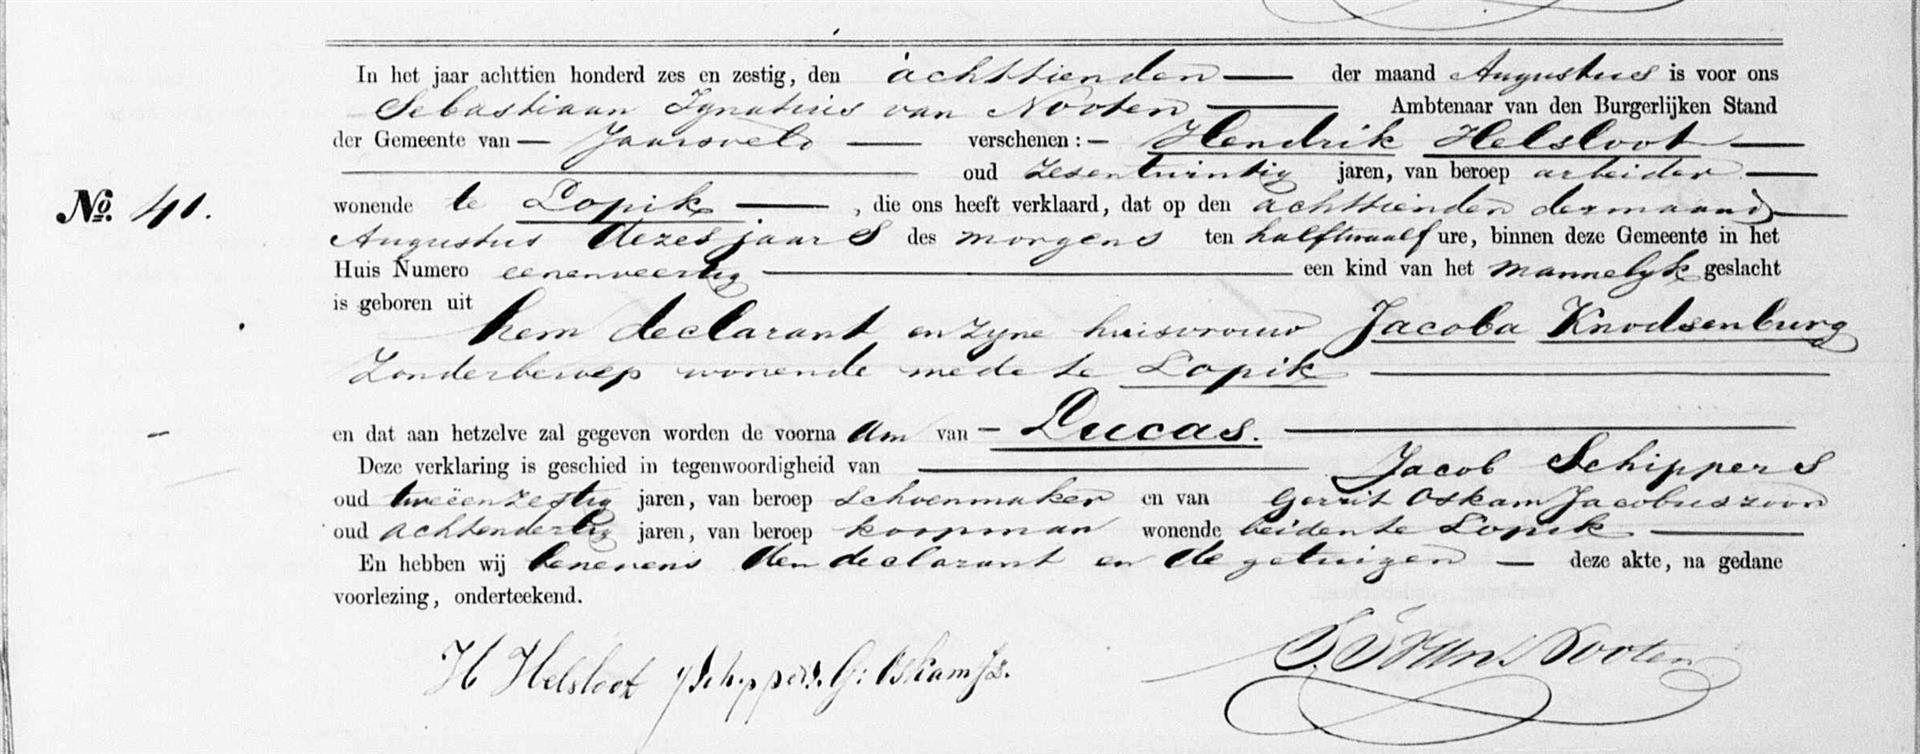 In het jaar achttien honderd zes en zestig, den achttienden der maand Augustus is voor ons
Sebastiaan Ignatius van Nooten Ambtenaar van den Burgerlijken Stand
der Gemeente van — Jaarsveld — verschenen: — Hendrik Helsloot —
oud zesentwintig jaren, van beroep arbeider —
No. 41. wonende te Lopik —, die ons heeft verklaard, dat op den achttienden der maand
Augustus dezes jaars des morgens ten halftwaalf ure, binnen deze Gemeente in het
Huis Numero eenenveertig — een kind van het mannelyk geslacht
is geboren uit
hem declarant en zyne huisvrouw Jacoba Knodsenburg
Zonder beroep wonende mede te Lopik —
en dat aan hetzelve zal gegeven worden de voornaam van — Lucas. —
Deze verklaring is geschied in tegenwoordigheid van — Jacob Schippers
oud tweëenzestig jaren, van beroep schoenmaker en van Gerrit Oskam Jacobuszoon
oud achtendertig jaren, van beroep koopman wonende beiden te Lopik —
En hebben wij benevens den declarant en de getuigen — deze akte, na gedane
voorlezing, onderteekend.
H Helsloot J Schippers. G: Oskam Jz. S. I. van Nooten